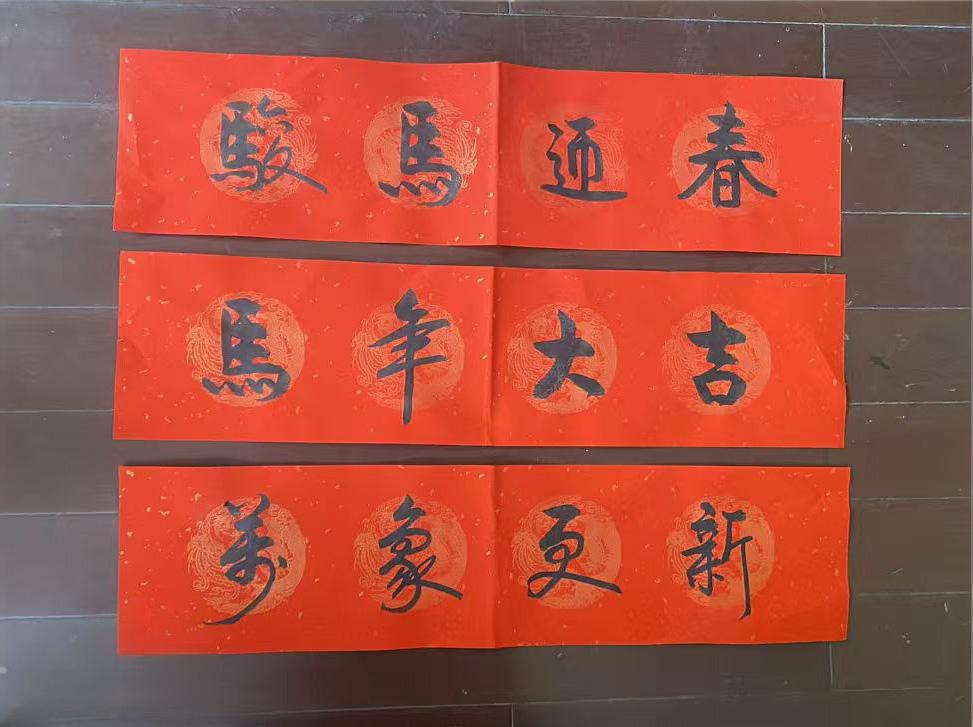 駿馬迎春
馬年大吉
萬象更新